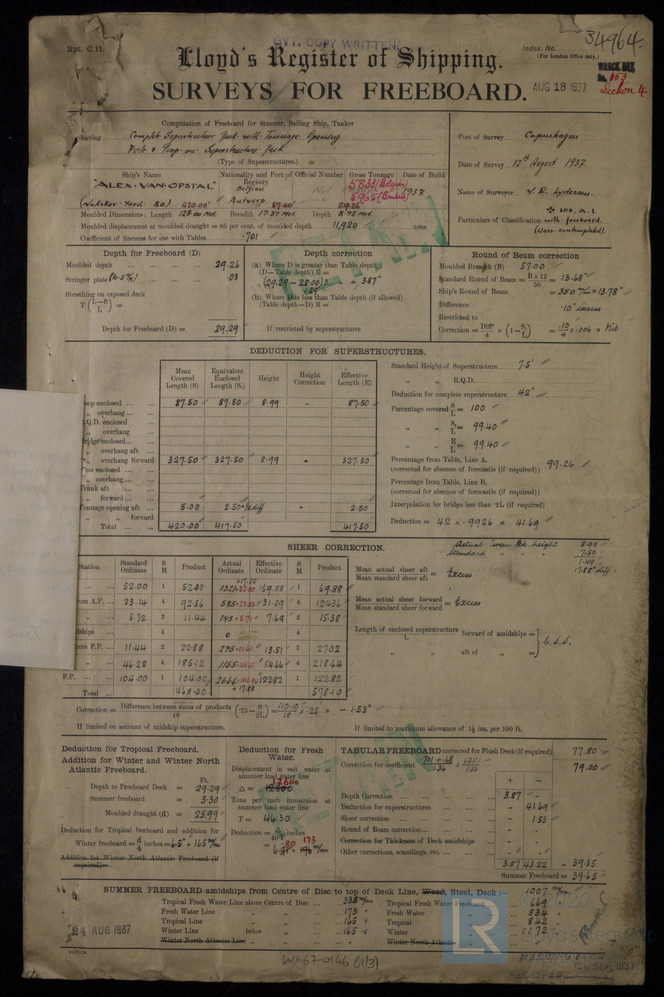 Rpt. C.11.
GVT. COPY WRITTEN
Index. No.
34964
(For London Office only.)
Lloyd's Register of Shipping.
WRECK BOX
No. 153
Section 4
SURVEYS FOR FREEBOARD.
AUG 18 1937
Computation of Freeboard for Steamer, Sailing Ship, Tanker
having Complete Superstructure Deck with Tonnage Opening
(Type of Superstructures.)
Port of Survey Copenhagen
Date of Survey 12th August 1937
Name of Surveyor
Particulars of Classification
(Class contemplated).
Ship's Name
Nationality and Port of Registry
Official Number
Gross Tonnage
Date of Build
"ALEX VAN OPSTAL"
Belgian
Antwerp
5833 (Belgian)
5965
1937
(Nakskov Yard 80) 420.00 57.00 29.26
Moulded Dimensions: Length 128.00 Mtr. Breadth 17.37 Mtr. Depth
Moulded displacement at moulded draught = 85 per cent. of moulded depth 11,920 tons
Coefficient of fineness for use with Tables .701
Depth for Freeboard (D)
Moulded depth 29.26
Stringer plate .03
Sheathing on exposed deck
T (L−S / L) =
Depth for Freeboard (D) = 29.29
Depth correction
(a) Where D is greater than Table depth
(D−Table depth) R =
(29.29 − 28.00) 3 = + 3.87"
(b) Where D is less than Table depth (if allowed)
(Table depth−D) R =
If restricted by superstructures
Round of Beam correction
Moulded Breadth (B) 57.00
Standard Round of Beam = B×12 / 50 = 13.68"
Ship's Round of Beam = 350 m/m = 13.78"
Difference .10" excess
Restricted to
Correction = Diff. / 4 × (1−S1/L) = .10/4 × .006 = Nil
DEDUCTION FOR SUPERSTRUCTURES.
Mean Covered Length (S)
Equivalent Enclosed Length (S1)
Height
Height Correction
Effective Length (E)
Poop enclosed 87.50 87.50 8.99 - 87.50
" overhang
R.Q.D. enclosed
" overhang
Bridge enclosed
" overhang aft
" overhang forward 327.50 327.50 8.99 - 327.50
F'cle enclosed
" overhang
Trunk aft
" forward
Tonnage opening aft 5.00 2.50 ½ diff - 2.50
" " forward
Total 420.00 417.50 417.50
Standard Height of Superstructure 7.5'
" " R.Q.D.
Deduction for complete superstructure 42"
Percentage covered S/L = 100
" " S1/L = 99.40
" " E/L = 99.40
Percentage from Table, Line A.
(corrected for absence of forecastle (if required)) 99.26
Percentage from Table, Line B.
(corrected for absence of forecastle (if required))
Interpolation for bridge less than .2L (if required)
Deduction = 42 × .9926 = 41.69
SHEER CORRECTION.
Actual height 8.99
Standard 7.50
1.49
17.88" diff.
Station
Standard Ordinate
S M
Product
Actual Ordinate
Effective Ordinate
S M
Product
52.00 1 52.00 1321=52.00 69.88 1 69.88
from A.P. 23.14 4 92.56 585=23.03 31.09 4 124.36
" 5.72 2 11.44 145=5.71 7.69 2 15.38
Amidships 4 0 4
from F.P. 11.44 2 22.88 295=11.61 13.51 2 27.02
" 46.28 4 185.12 54.66 4 218.64
F.P. 104.00 1 104.00 122.82 1 122.82
Total 468.00 + 17.88 578.10
Mean actual sheer aft / Mean standard sheer aft = Excess
Mean actual sheer forward / Mean standard sheer forward = Excess
Length of enclosed superstructure / L forward of amidships =
" " aft of " =
C.S.S.
Correction = Difference between sums of products / 18 (.75 − S/2L) = 110.10 / 18 × .25 = − 1.53"
If limited on account of midship superstructure.
If limited to maximum allowance of 1½ ins. per 100 ft.
Deduction for Tropical Freeboard.
Addition for Winter and Winter North Atlantic Freeboard.
Ft.
Depth to Freeboard Deck = 29.29
Summer freeboard = 3.30
Moulded draught (d) = 25.99
Deduction for Tropical freeboard and addition for
Winter freeboard = d/4 inches = 6.5" = 165 m/m
Addition for Winter North Atlantic Freeboard (if required) =
Deduction for Fresh Water.
Displacement in salt water at summer load water line
Δ =
Tons per inch immersion at summer load water line
T = 46.30
Deduction = inches
173
TABULAR FREEBOARD corrected for Flush Deck (if required) 77.80
Correction for coefficient .701 + .68 / 1.36 79.00
+ −
Depth Correction 3.87 -
Deduction for superstructures - 41.69
Sheer correction - 1.53
Round of Beam correction - -
Correction for Thickness of Deck amidships - -
Other corrections, scantlings, etc. - -
3.87 43.22 − 39.35
Summer Freeboard = 39.65
SUMMER FREEBOARD amidships from Centre of Disc to top of Deck Line, Wood, Steel, Deck: 1007 m/m
Tropical Fresh Water Line above Centre of Disc 338 m/m
Fresh Water Line " " 173 "
Tropical Line " " 165 "
Winter Line below " " 165 "
Winter North Atlantic Line " "
Tropical Fresh Water Freeboard 669
Fresh Water " 834
Tropical " 842
Winter " 1172
Winter North Atlantic "
24 AUG 1937
LR
© 2020
Lloyd's Register
W467-0146 (1/3)